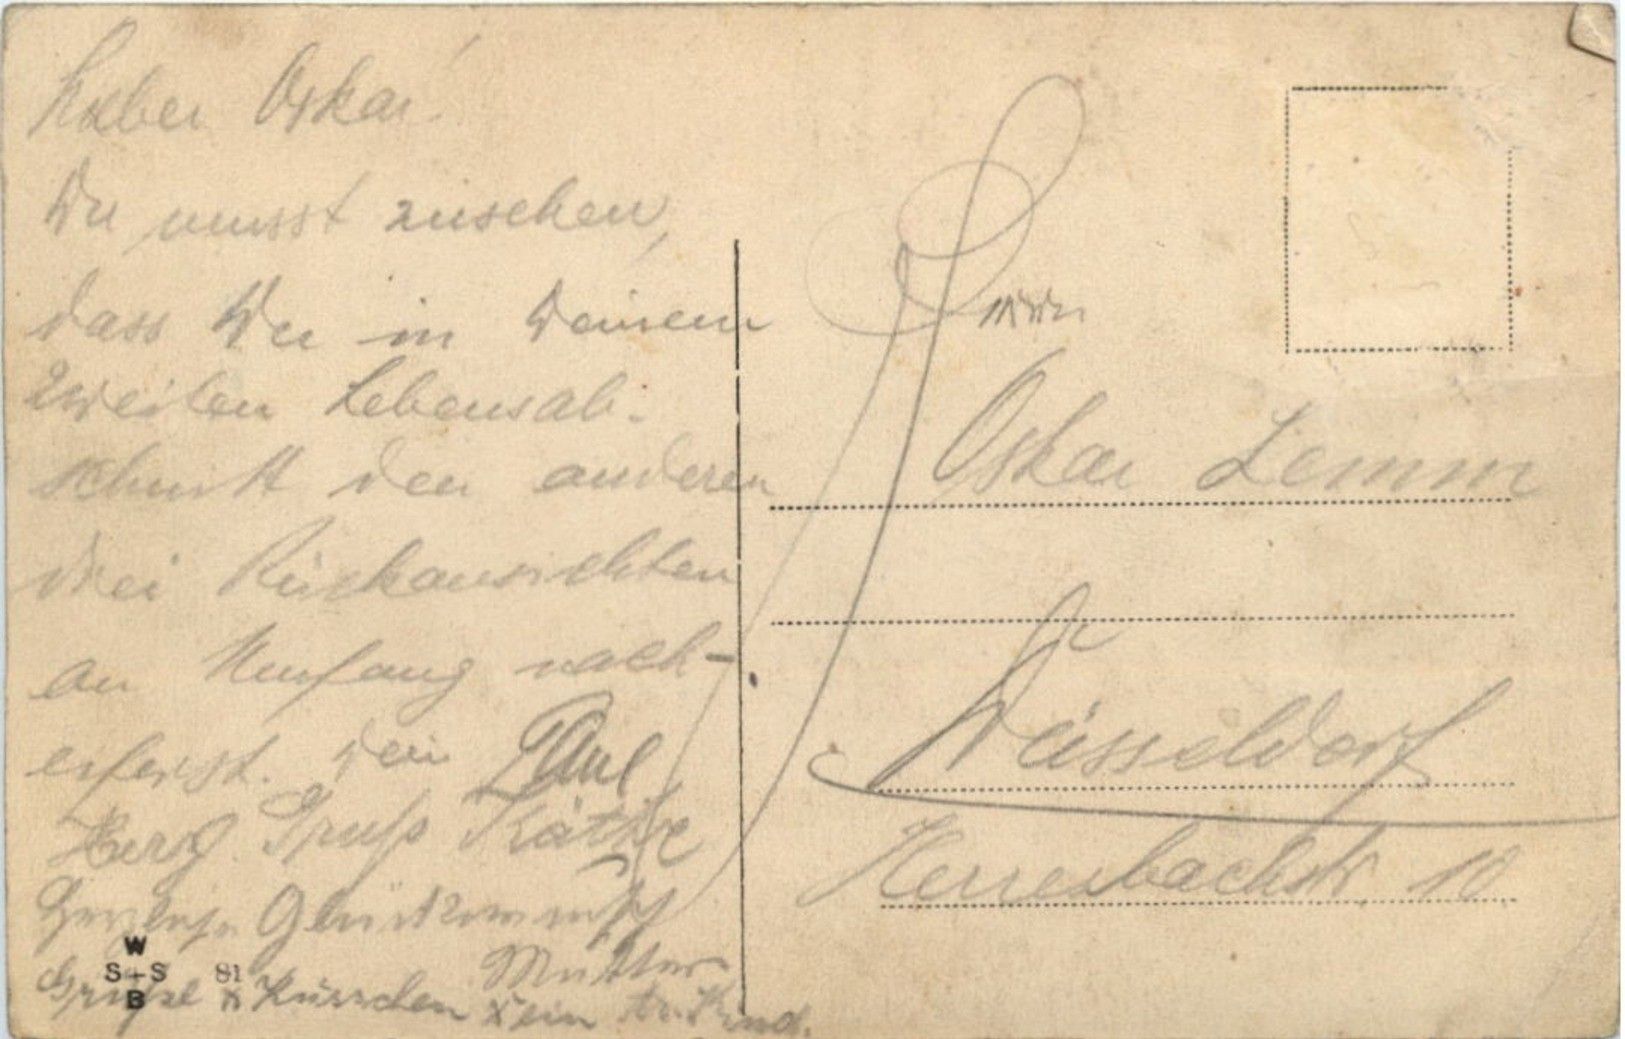 Lieber Oskar!
Du musst zusehen,
dass Du in Deinem
zweiten Lebensab-
schnitt den anderen
drei Rückansichten
an Umfang nach-
eiferst. Dein Paul
Herzl. Gruß Käthe
Glückwunsch
Mutter
Grüße Küsschen ein
Herrn
Oskar Lemm
Düsseldorf
Herresbachstr 10
W
S+S 81
B